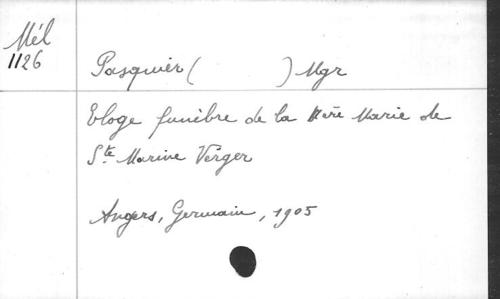 Mél
1126
Pasquier ( ) Mgr
Eloge funèbre de la Mère Marie de
Ste Marine Verger
Angers, Germain, 1905